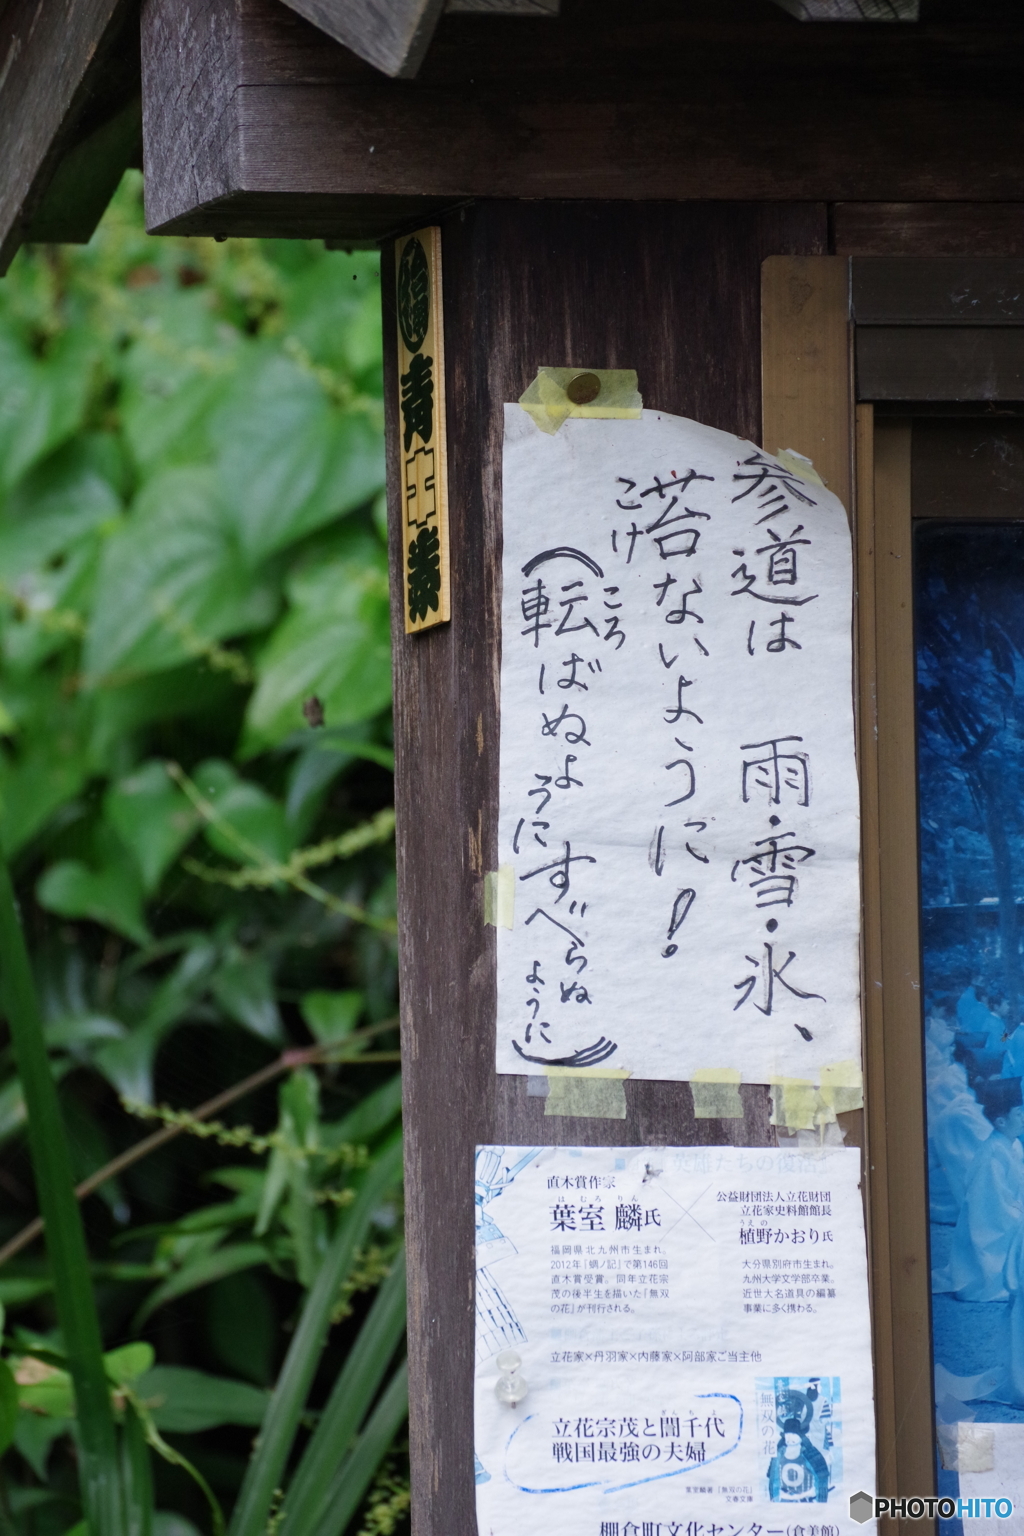 参道は 雨・雪・氷、
苔ないように!
こけ
(転ばぬように すべらぬように)
ころ
英雄たちの復活
直木賞作家
はむろ りん
葉室 麟氏
福岡県北九州市生まれ。
2012年『蜩ノ記』で第146回
直木賞受賞。同年立花宗
茂の後半生を描いた『無双
の花』が刊行される。
公益財団法人立花財団
立花家史料館館長
うえの
植野かおり氏
大分県別府市生まれ。
九州大学文学部卒業。
近世大名道具の編纂
事業に多く携わる。
立花家×丹羽家×内藤家×阿部家ご当主他
ぎんちよ
立花宗茂と誾千代
戦国最強の夫婦
無双の花
葉室麟著『無双の花』
文春文庫
棚倉町文化センター(倉美館)
PHOTOHITO